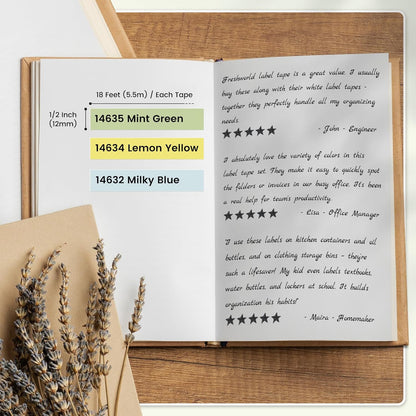 18 Feet (5.5m) / Each Tape
1/2 Inch
(12mm)
14635 Mint Green
14634 Lemon Yellow
14632 Milky Blue
Freshworld label tape is a great value. I usually
buy these along with their white label tapes -
together they perfectly handle all my organizing
needs.
- John - Engineer
I absolutely love the variety of colors in this
label tape set. They make it easy to quickly spot
the folders or invoices in our busy office. It's been
a real help for team's productivity.
- Lisa - Office Manager
"I use these labels on kitchen containers and oil
bottles, and on clothing storage bins - they're
such a lifesaver! My kid even labels textbooks,
water bottles, and lockers at school. It builds
organization his habits!"
- Maira - Homemaker